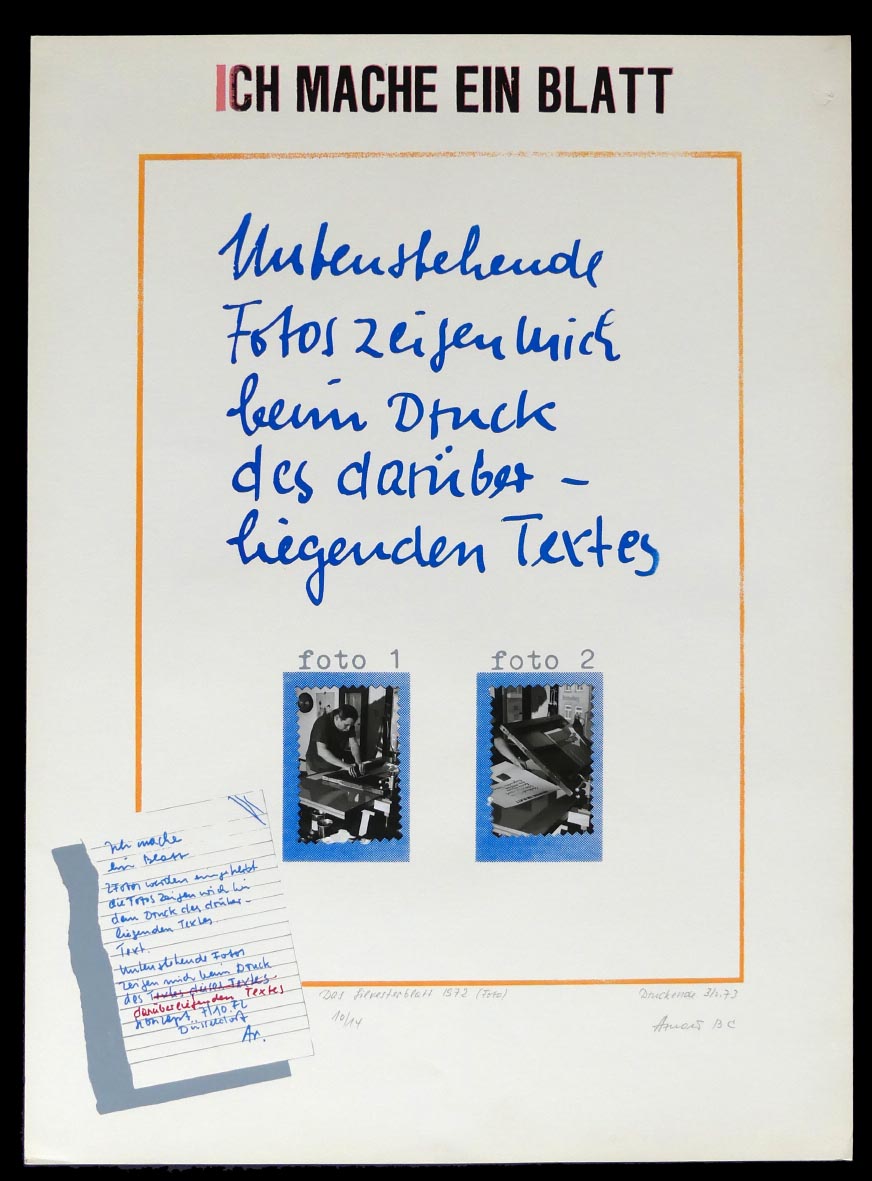 ICH MACHE EIN BLATT
Untenstehende
Fotos zeigen mich
beim Druck
des darüber -
liegenden Textes
foto 1
foto 2
Ich mache
ein Blatt
2 Fotos werden eingeklebt
die Fotos zeigen mich bei
dem Druck des drüber-
liegenden Textes
Text.
Untenstehende Fotos
zeigen mich beim Druck
des Textes dieses Textes
darüberliegenden Textes
Konzept 7/10.72
Düsseldorf
Ar.
Das Silvesterblatt 1972 (Foto)
10/14